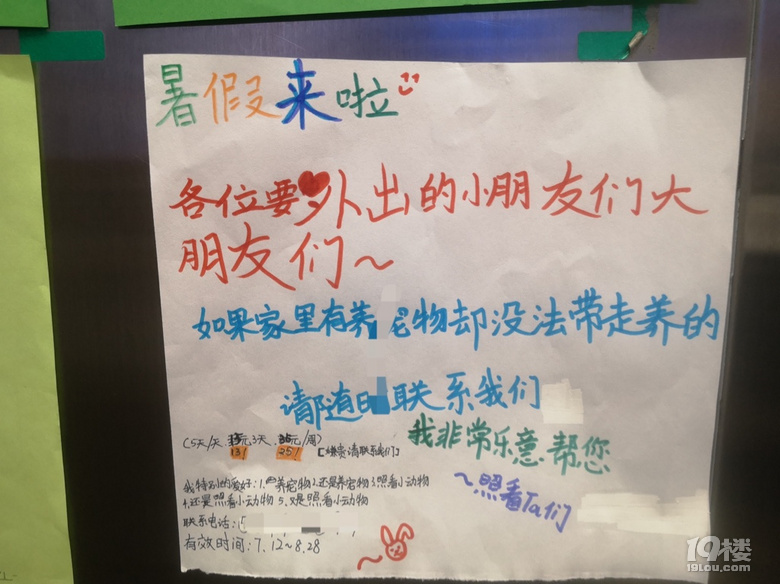 暑假来啦
各位要外出的小朋友们大
朋友们~
如果家里有养宠物却没法带走养的
请随时联系我们
我非常乐意帮您
~照看Ta们
(5天/天, 元3天, 元/周)
13! 25! [ 请联系我们]
我特别的爱好:1.养宠物2.还是养宠物3.照看小动物
4.还是照看小动物 5.又是照看小动物
联系电话:
有效时间:7.12~8.28
19楼
19lou.com